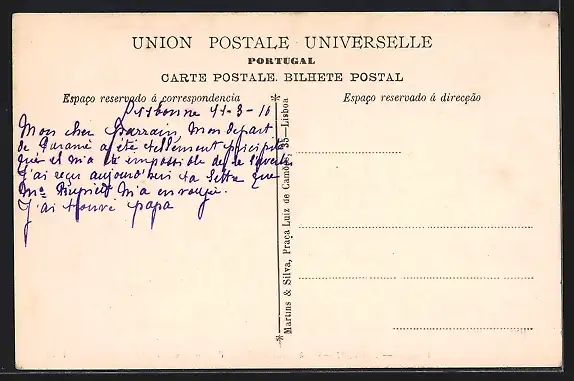 UNION POSTALE UNIVERSELLE
PORTUGAL
CARTE POSTALE. BILHETE POSTAL
Espaço reservado á correspondencia
Espaço reservado á direcção
Lisbonne 11-3-10
Mon cher Parrain, Mon départ
de Parané a été tellement précipité
qu'il m'a été impossible de le
J'ai reçu aujourd'hui ta lettre que
Me m'a envoyée.
J'ai trouvé papa
Martins & Silva, Praça Luiz de Camões, 35—Lisboa